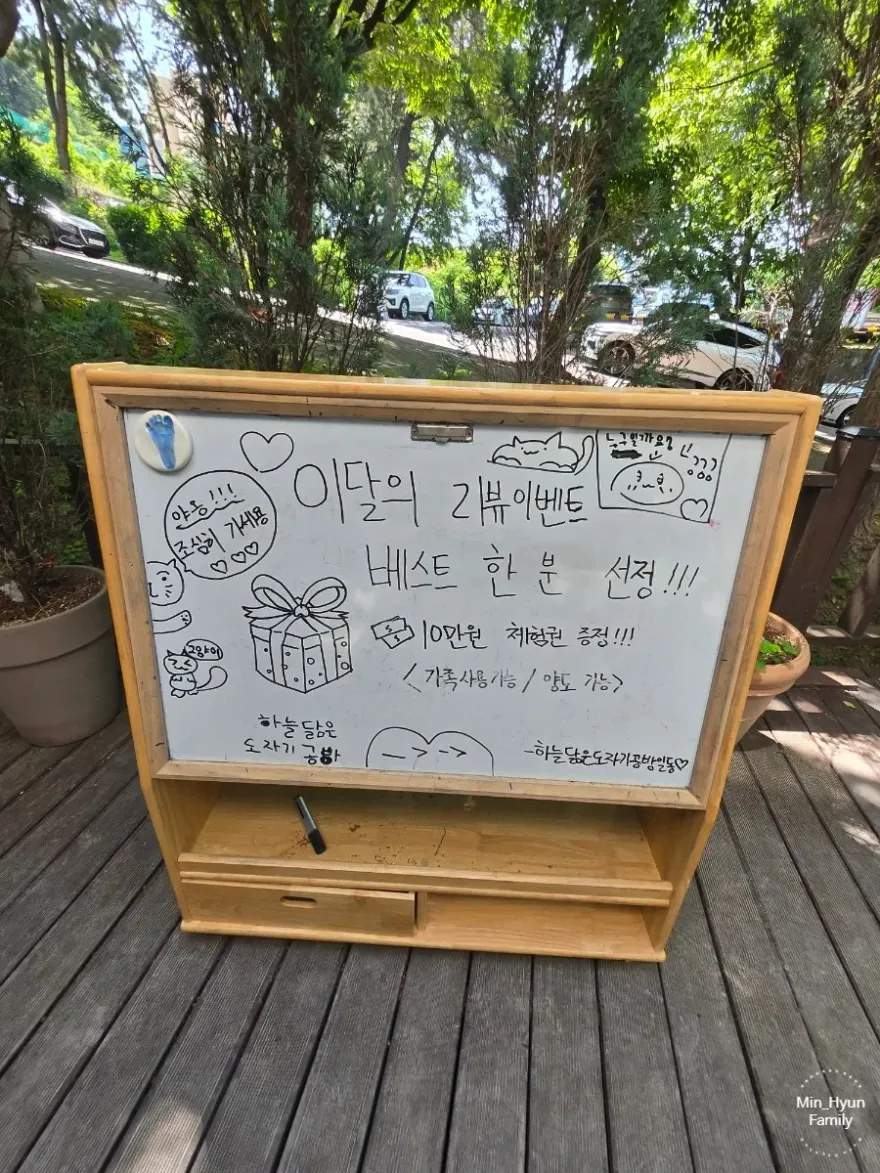 이달의 리뷰이벤트
베스트 한 분 선정!!!
10만원 체험권 증정!!!
<가족사용가능 / 양도 가능>
-하늘닮은도자기공방일동♡
야옹!!!
조심히 가세용
♡♡♡
고양이
하늘닮은
도자기 공방
누구일까요?
Min_Hyun
Family